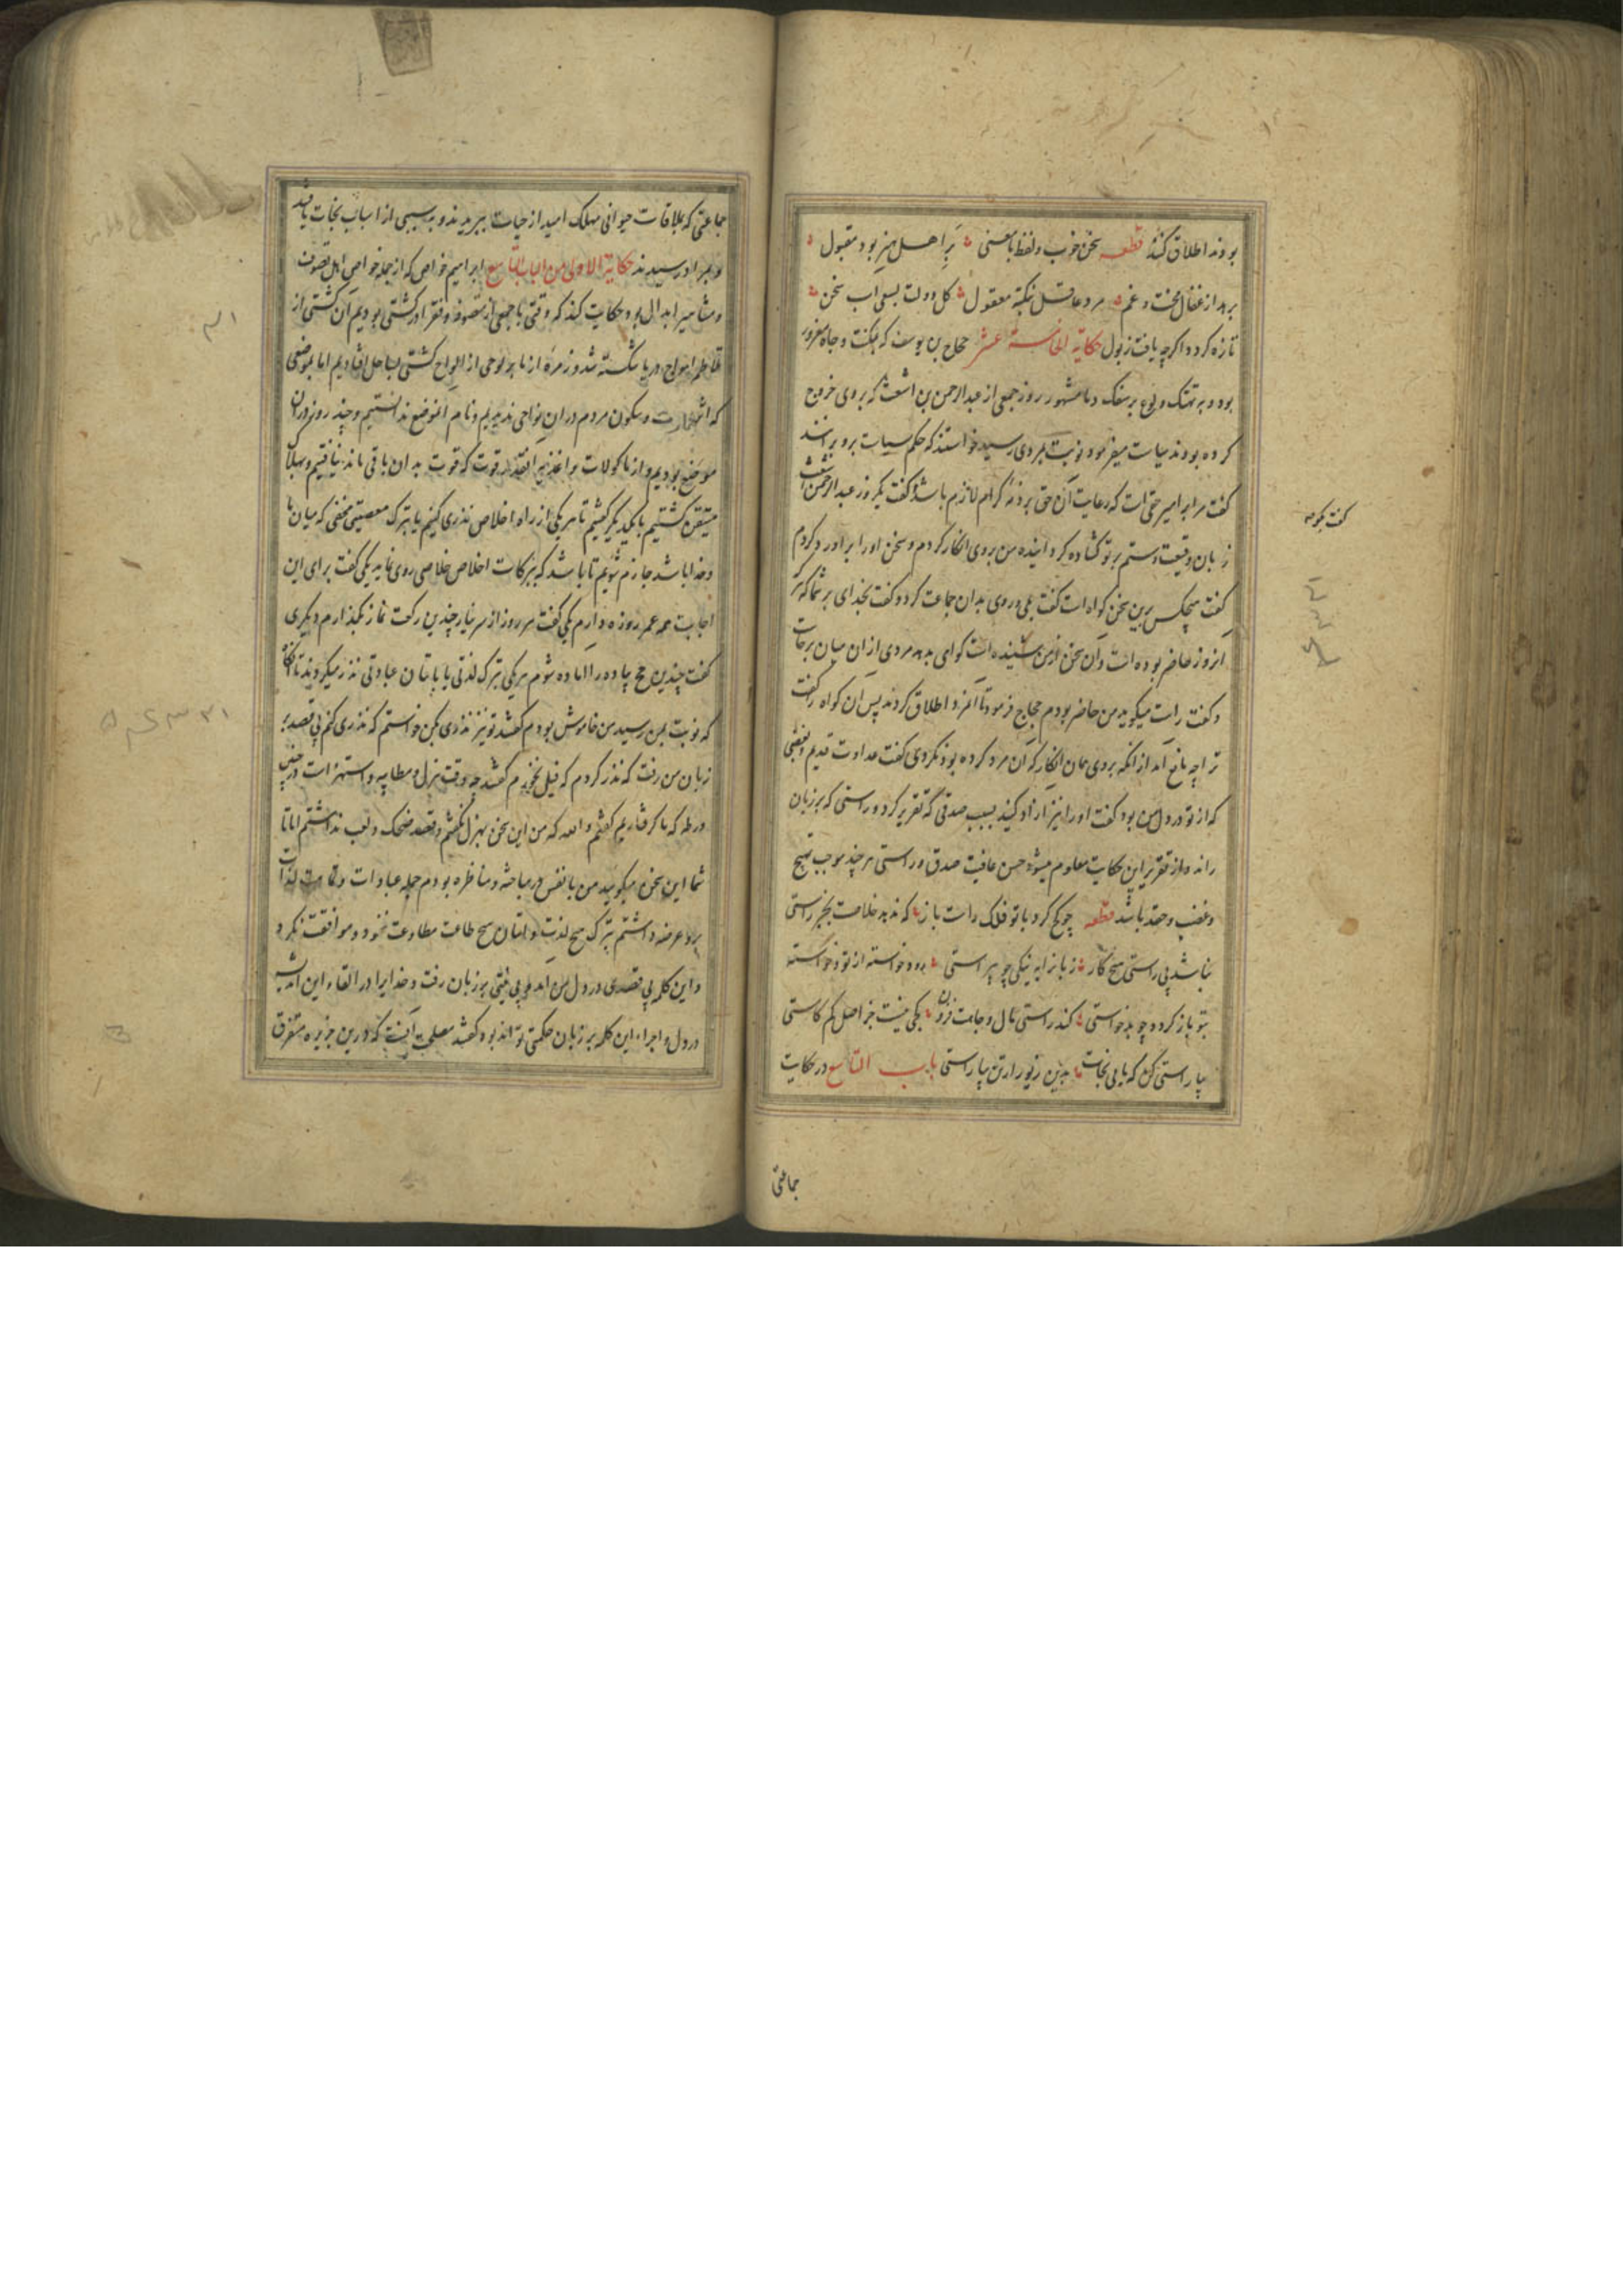 بودند اطلاق کنند قطعه سخن خوب و لفظ با معنی بر اهل هنر بود مقبول
برهد از عقال محنت و غم مرد عاقل بنکته معقول کل دولت بسعی اب سخن
تازه کردد اکرچه یافت زبول حکایة الخامسة عشر حجاج بن یوسف که بمکنت و جاه مغرور
بود و به تهتک و ولوع بر سفک دما مشهور روز جمعی از عبدالرحمن بن اشعث که بروی خروج
کرده بودند سیاست میفرمود نوبت بمردی رسید خواستند که حکم سیاست برو برانند
کفت مرا بر امیر حقی است که رعایت آن حق بر ذمه کرام لازم باشد کفت یکروز عبدالرحمن اشعث
زبان وقیعت و ستم بر تو کشاده کرداینده من بروی انکار کردم و سخن او را بر او رد کردم
کفت هیچکس برین سخن کواه است کفت بلی و روی بدان جماعت کرد و کفت بخدای بر شما که هر که
آنروز حاضر بوده است و آن سخن از من شنیده است کواهی بدهد مردی از آن میان برخاست
و کفت راست میکوید من حاضر بودم حجاج فرمود تا آنمرد را اطلاق کردند پس آن کواه را کفت
ترا چه مانع آمد از آنکه بروی همان انکار که آن مرد کرده بود نکردی کفت عداوت قدیم و بغضی
که از تو در دل من بود کفت او را نیز آزاد کنید بسبب صدقی که تقریر کرد و راستی که بر زبان
راند و از تقریر این حکایت معلوم میشود حسن عاقبت صدق و راستی هر چند موجب تهیج
و غضب و حقد باشد قطعه چو کج کردد با تو فلک راست باز که ندهد خلاصت بجز راستی
نباشد بی راستی هیچ کار زبانرا به نیکی چو پیراستی بود خواسته از تو و خواسته
بتو باز کردد چو بد خواستی کند راستی مال و جاهت فزون کجی نیست جز اصل کم کاستی
بیا راستی کن که یابی نجات بدین زیور ار تن بیاراستی باب التاسع در حکایت
جماعتی
کفت بکو
جماعتی که بملاقات حیوانی مهلک امید از حیات ببریدند و به سببی از اسباب نجات یافتند
و بمراد رسیدند حکایة الاولی من الباب التاسع ابراهیم خواص که از جمله خواص اهل تصوف
و مشاهیر ابدال بود حکایت کند که وقتی با جمعی از متصوفه و فقرا در کشتی بودیم آن کشتی از
تلاطم امواج دریا شکسته شد و زمره از ما بر لوحی از الواح کشتی بساحل افتادیم اما بموضعی
که اثر عمارت و سکون مردم در آن نواحی ندیدیم و نام آنموضع ندانستیم و چند روز در آن
موضع بودیم و از ماکولات و اغذیه آنقدر قوت که قوت بدان باقی ماند نیافتیم و بهلاک
متیقن کشتیم با یکدیگر کفتیم تا هر یکی از راه اخلاص نذری کنیم یا بترک معصیتی مخفی که میان ما
و خدا باشد جازم شویم تا باشد که ببرکات اخلاص خلاصی روی نماید یکی کفت برای این
اجابت همه عمر روزه دارم یکی کفت هر روز از سر نیاز چندین رکعت نماز بکذارم دیکری
کفت چندین حج پیاده را آماده شوم هر یکی بترک لذتی یا باتیان عبادتی نذر میکردند تا آنکاه
که نوبت بمن رسید من خاموش بودم کفتند تو نیز نذری بکن خواستم که نذری کنم بی قصد بر
زبان من رفت که نذر کردم که فیل نخورم کفتند چه وقت هزل و مطایبه و استهزاست در چنین
ورطه که ما کرفتاریم کفتم والله که من این سخن بهزل نکفتم و قصد ضحک و لعب نداشتم اما تا
شما این سخن میکویید من با نفس در مباحثه و مناظره بودم جمله عبادات و تمامت لذات
برو عرضه داشتم بترک هیچ لذت و اتیان هیچ طاعت مطاوعت ننمود و موافقت نکرد
و این کلمه بی قصدی در دل من آمد و بی نیتی بر زبان رفت و خدایرا در القاء این اندیشه
در دل و اجراء این کلمه بر زبان حکمتی تواند بود کفتند مصلحت آنست که درین جزیره متفرق